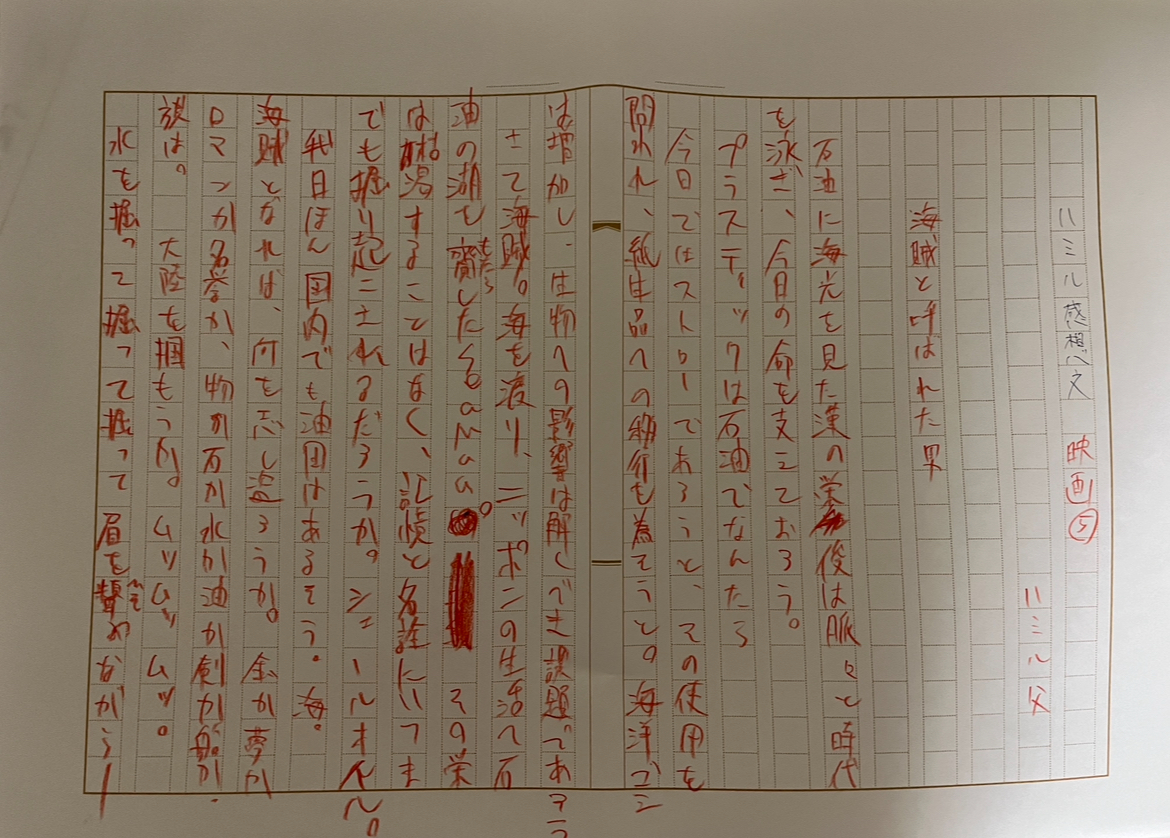 ハミル感想文 映画⑤
ハミル父
海賊と呼ばれた男
石油に海光を見た漢の栄 後は脈々と時代
を泳ぎ、今日の命を支えておろう。
プラスティックは石油でなんたら
今日ではストローであろうと、その使用を
問われ、紙生品への移行も為そうと。海洋ゴミ
は増加し、生物への影響は解くべき課題であろう
さて海賊。海を渡り、ニッポンの生活へ石
油の湖を齎もたらした その栄
は枯渇することはなく、記憶と名誉にいつま
でも掘り起こされるだろうか。シェールオイル。
我日ほん国内でも油田はあるそう。海。
海賊となれば、何を志し盗ろうか。金か夢か
ロマンか名誉か、物か石か水か油か剣か船か.
旗は。 大陸を掴もうか。ムッムッ ムッ。
水を掘って掘って掘って 眉を顰ひそめながらー